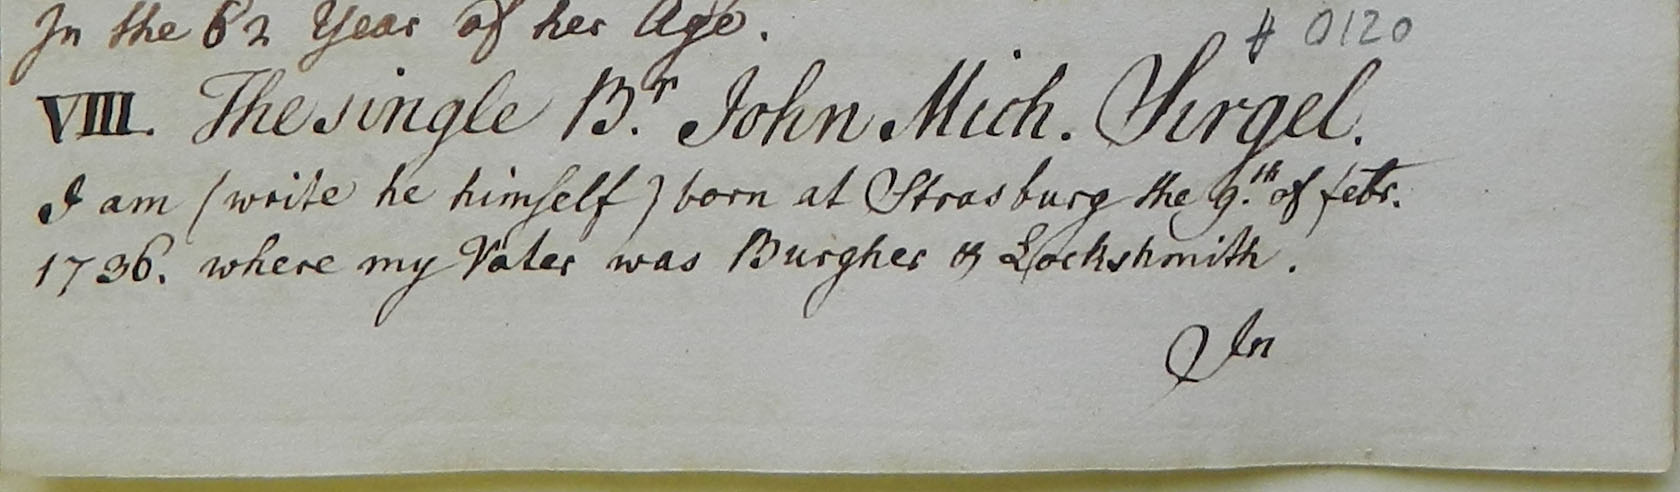 In the 62 Year of her Age.
# 0120
VIII. The single Br. John Mich. Sirgel.
I am (write he himself) born at Strasburg the 9.th of febr.
1736. where my Vater was Burgher & Lockshmith.
In